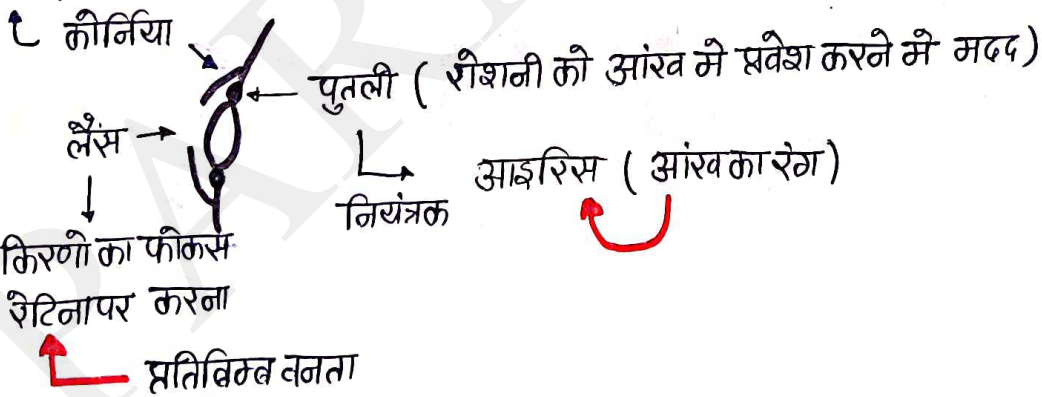 कोर्निया
पुतली ( रोशनी को आंख मे प्रवेश करने मे मदद )
लैंस
आइरिस ( आंख का रंग )
नियंत्रक
किरणो का फोकस
रेटिना पर करना
प्रतिबिम्ब बनता